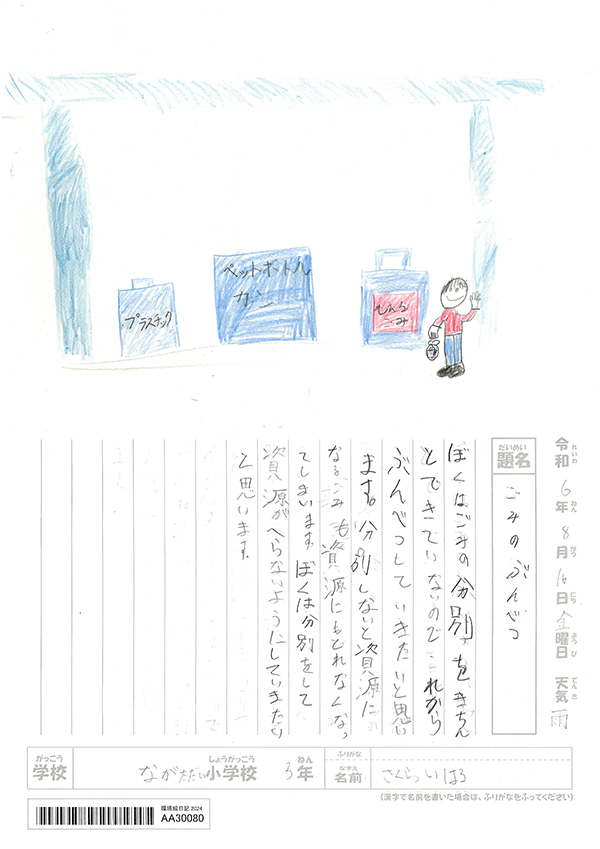 プラスチック
ペットボトル
カン
もえる
ごみ
令和6年8月16日金曜日 天気雨
れいわ ねん がつ にち ようび てんき
だいめい
題名
ごみのぶんべつ
ぼくはごみの分別をきちん
とできていないのでこれから
ぶんべつしていきたいと思い
ます。分別しないと資源に
なるごみも資源にもどれなくなっ
てしまいます。ぼくは分別をして
資源がへらないようにしていきたい
と思います。
がっこう
学校
しょうがっこう
小学校
3年
ねん
ふりがな
なまえ
名前
さくらい はる
(漢字で名前を書いた場合は、ふりがなをふってください)
環境絵日記 2024
AA30080